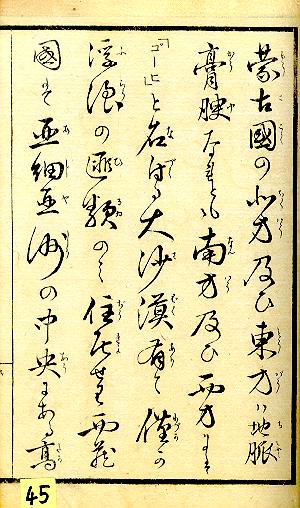 蒙古國の北方及ひ東方ハ地脈
膏腴なれとも南方及ひ西方にハ
「ゴービ」と名付る大沙漠有て僅か
浮浪の匪類のミ住居せり西蔵
國ハ亜細亜洲の中央にある高
45